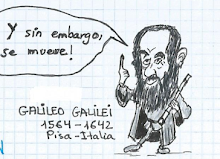 Y sin embargo,
se mueve!
GALILEO GALILEI
1564-1642
Pisa-Italia